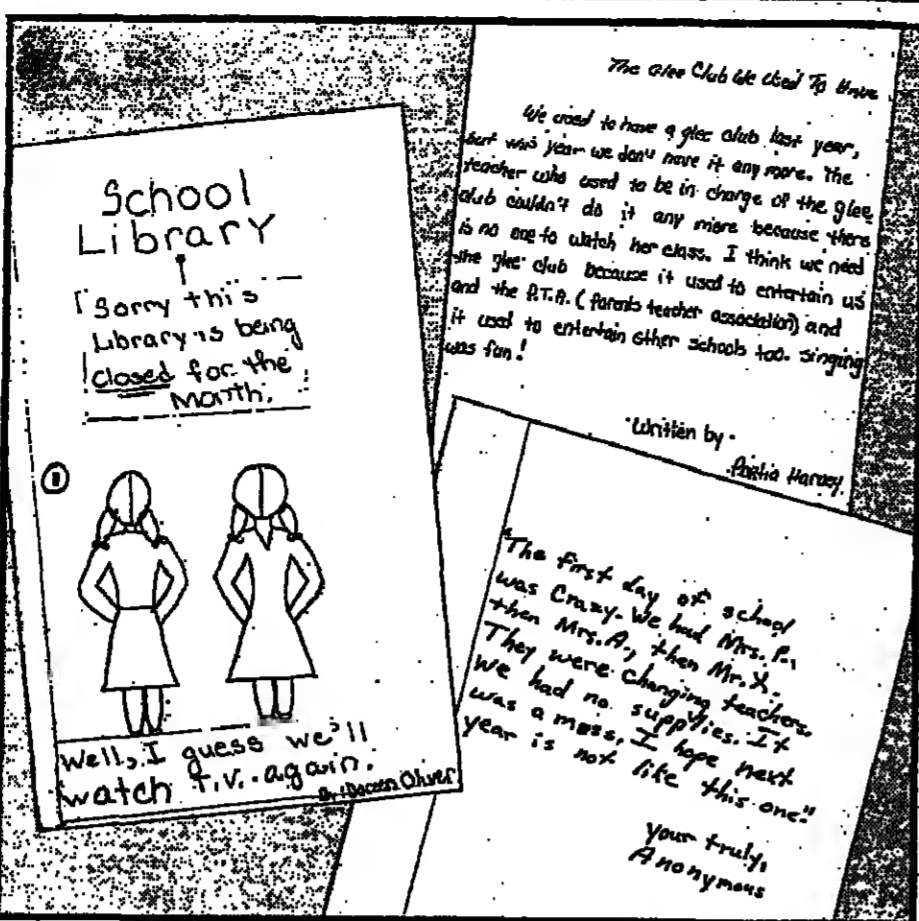 School
Library
Sorry this
Library is being
closed for the
Month.
1
Well, I guess we'll
watch t.v. again.
By: Doreen Oliver
The Glee Club We Used To Have
We used to have a glee club last year,
but this year we don't have it any more. The
teacher who used to be in charge of the glee
club couldn't do it any more because there
is no one to watch her class. I think we need
the glee club because it used to entertain us
and the P.T.A. (parents teacher association) and
it used to entertain other schools too. singing
was fun!
Written by
Harvey
"The first day of school
was Crazy. We had Mrs. P.,
then Mrs. A., then Mr. X.
They were changing teachers.
We had no supplies. It
was a mess, I hope next
year is not like this one."
your truly,
Anonymous